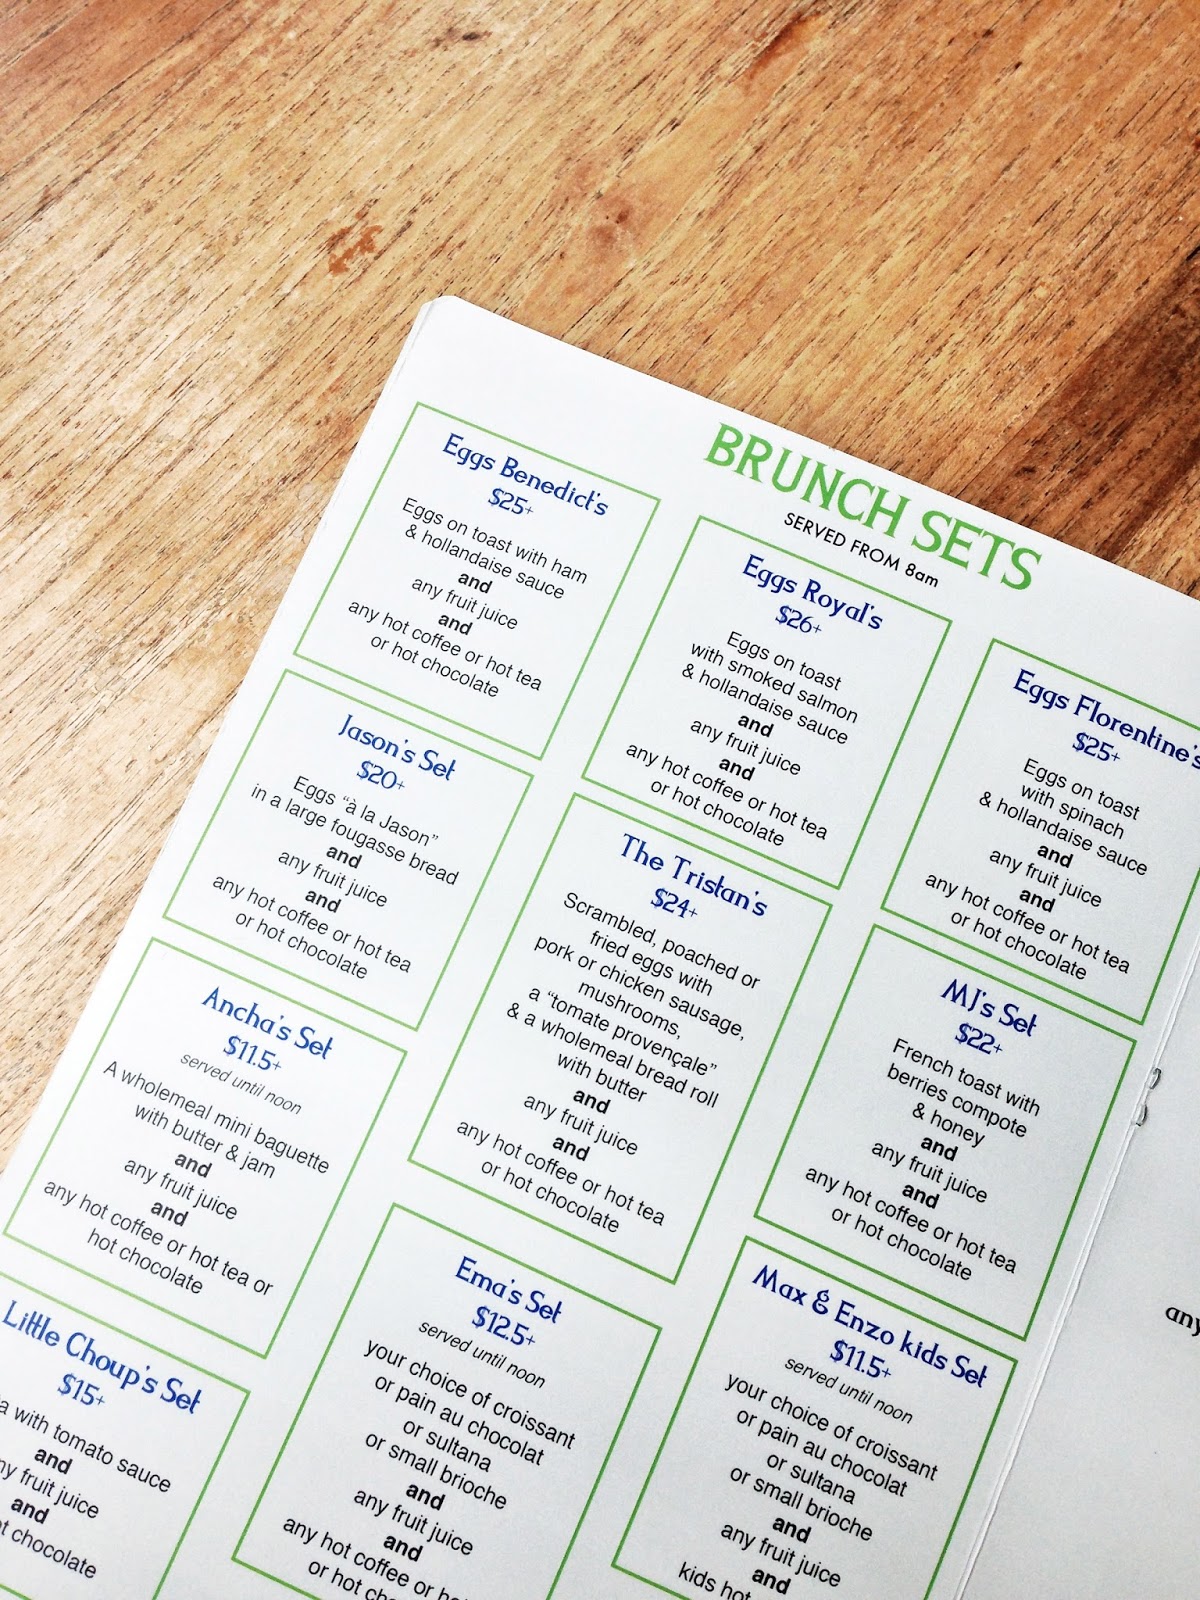 BRUNCH SETS
SERVED FROM 8am
Eggs Benedict's
$25+
Eggs on toast with ham
& hollandaise sauce
and
any fruit juice
and
any hot coffee or hot tea
or hot chocolate
Eggs Royal's
$26+
Eggs on toast
with smoked salmon
& hollandaise sauce
and
any fruit juice
and
any hot coffee or hot tea
or hot chocolate
Eggs Florentine's
$25+
Eggs on toast
with spinach
& hollandaise sauce
and
any fruit juice
and
any hot coffee or hot tea
or hot chocolate
Jason's Set
$20+
Eggs “à la Jason”
in a large fougasse bread
and
any fruit juice
and
any hot coffee or hot tea
or hot chocolate
The Tristan's
$24+
Scrambled, poached or
fried eggs with
pork or chicken sausage,
mushrooms,
a “tomate provençale”
& a wholemeal bread roll
with butter
and
any fruit juice
and
any hot coffee or hot tea
or hot chocolate
MJ's Set
$22+
French toast with
berries compote
& honey
and
any fruit juice
and
any hot coffee or hot tea
or hot chocolate
Ancha's Set
$11.5+
served until noon
A wholemeal mini baguette
with butter & jam
and
any fruit juice
and
any hot coffee or hot tea or
hot chocolate
Little Choup's Set
$15+
with tomato sauce
and
fruit juice
and
chocolate
Ema's Set
$12.5+
served until noon
your choice of croissant
or pain au chocolat
or sultana
or small brioche
and
any fruit juice
and
any hot coffee or
or hot
Max & Enzo kids Set
$11.5+
served until noon
your choice of croissant
or pain au chocolat
or sultana
or small brioche
and
any fruit juice
and
kids hot
any